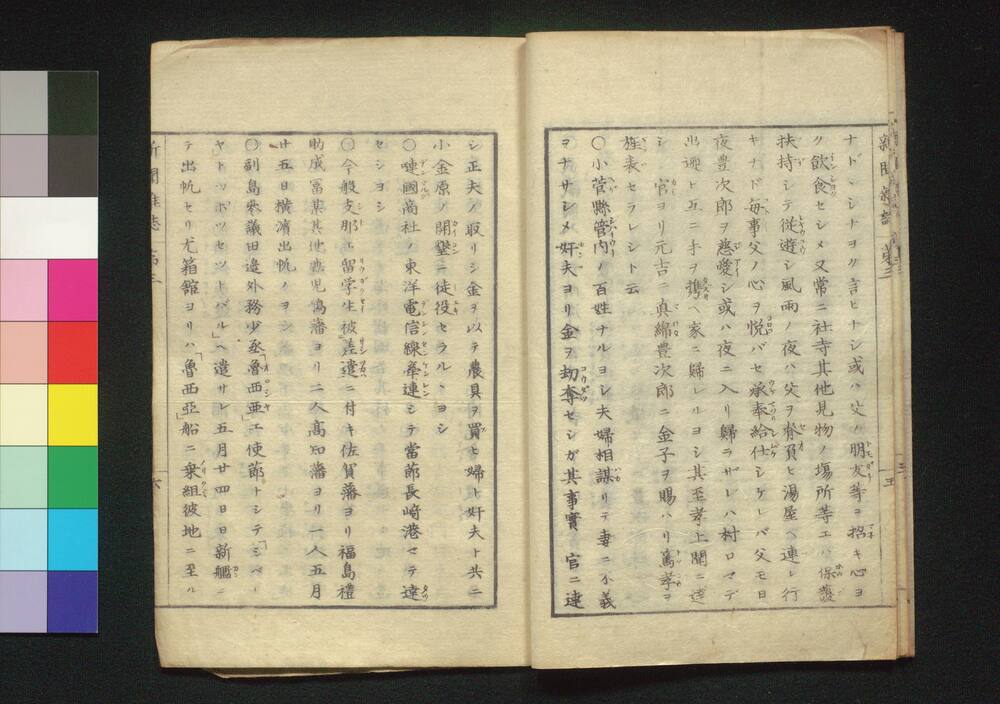 新聞雑誌 第三
五
ナドヽシナヨク言ヒトシ或ハ父ノ朋友等ヲ招キ心ヨ
ク飲食セシメ又常ニ社寺其他見物ノ場所等エハ保護
扶持シテ従遊シ風雨ノ夜ハ父ヲ脊負ヒ湯屋ヘ連レ行
キナド毎事父ノ心ヲ悦バセ承奉給仕シケレバ父モ日
夜豊次郎ヲ慈愛シ或ハ夜ニ入リ歸ラザレハ村口マデ
出迎ヒ互ニ手ヲ携ヘ家ニ歸レルヨシ其至孝上聞ニ達
シ官ヨリ元吉ニ真綿豊次郎ニ金子ヲ賜ハリ篤孝ヲ
旌表セラレシト云
〇小菅縣管内ノ百姓ナルヨシ夫婦相謀リテ妻ニ不義
ヲナサシメ奸夫ヨリ金ヲ劫奪セシガ其事實官ニ達
シ正夫ノ取リシ金ヲ以テ農具ヲ買ヒ婦ト奸夫ト共ニ
小金原ノ開墾ニ徒役セラルヽヨシ
〇嗹國商社ノ東洋電信線牽連シテ當節長崎港マテ達
セシヨシ
〇今般支那エ留学生被差遣ニ付キ佐賀藩ヨリ福島禮
助成冨某其他鹿児嶋藩ヨリ二人高知藩ヨリ一人五月
廿五日横濱出帆ノヨシ
〇副島参議田邉外務少丞「魯西亜」エ使節トシテ「シベー
ヤトツポツセツトバル」ヘ遣サレ五月廿四日日新艦ニ
テ出帆セリ尤箱舘ヨリハ「魯西亞」船ニ乗組彼地ニ至ル
新聞雑誌 第三
六